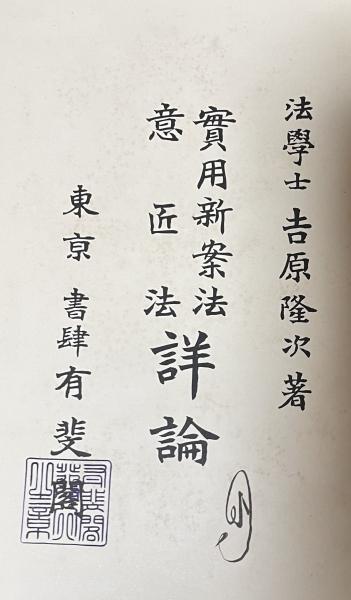 法學士 𠮷原隆次著
實用新案法
意匠法
詳論
東京 書肆 有斐閣